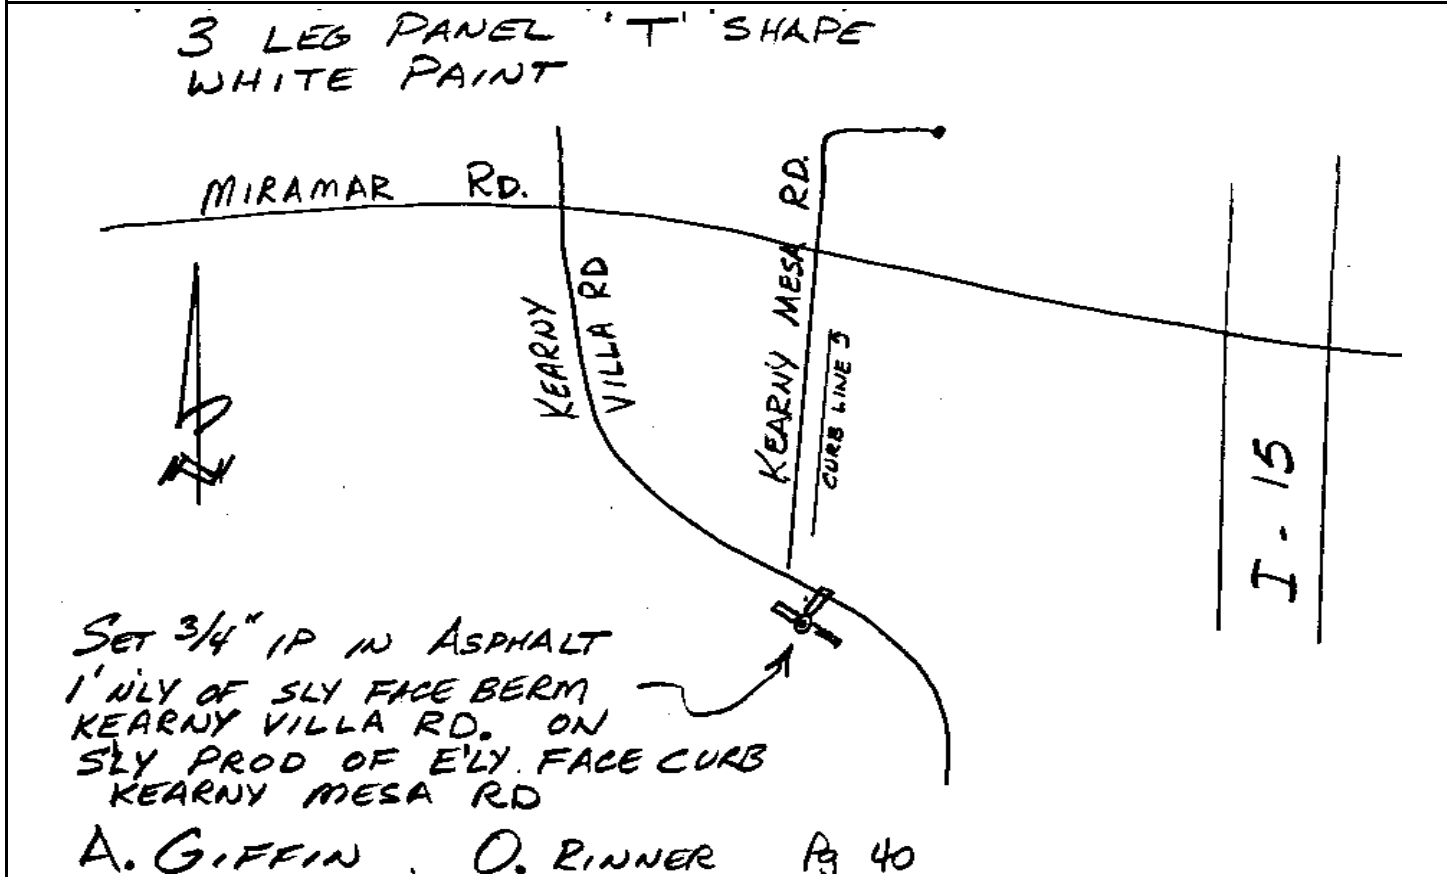 3 LEG PANEL 'T' SHAPE
WHITE PAINT
MIRAMAR RD.
KEARNY
VILLA RD
KEARNY MESA RD.
CURB LINE
I-15
N
SET 3/4" IP IN ASPHALT
1' N'LY OF SLY FACE BERM
KEARNY VILLA RD. ON
S'LY PROD OF E'LY FACE CURB
KEARNY MESA RD
A. GIFFIN, O. RINNER Pg 40